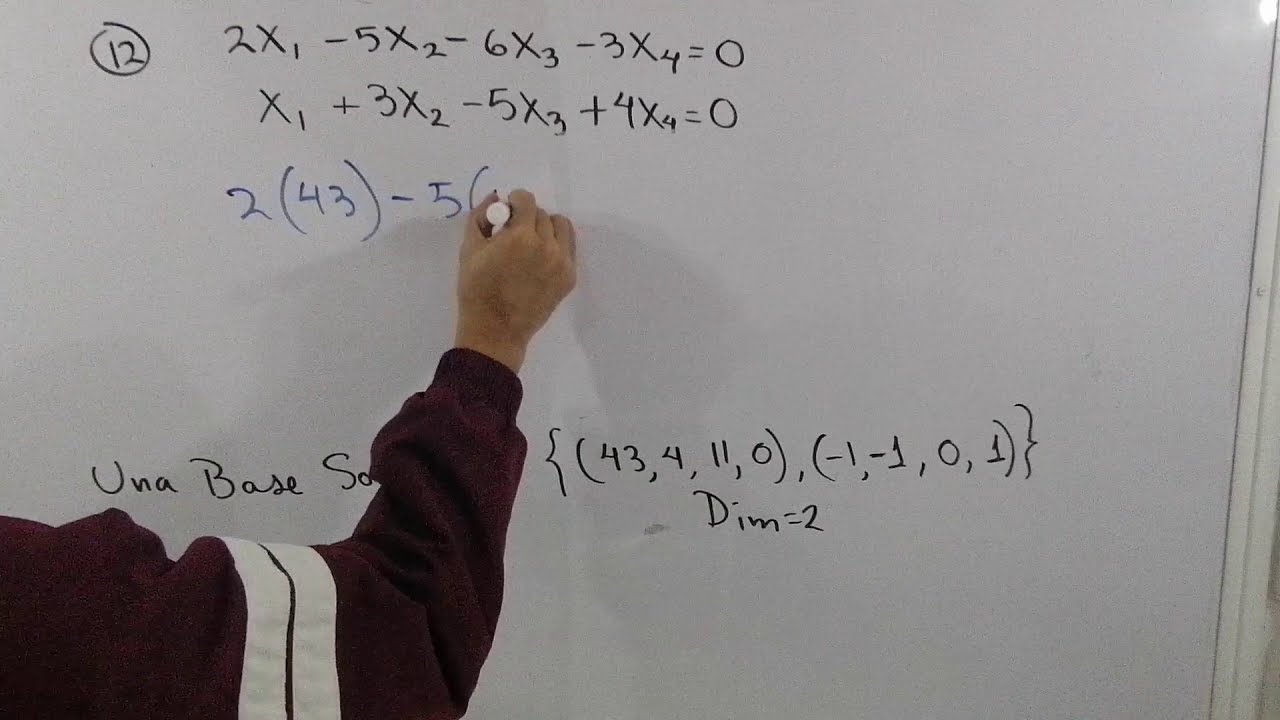 12 2X₁ - 5X₂ - 6X₃ - 3X₄ = 0
X₁ + 3X₂ - 5X₃ + 4X₄ = 0
2(43) - 5(
Una Base {(43, 4, 11, 0), (-1, -1, 0, 1)}
Dim = 2